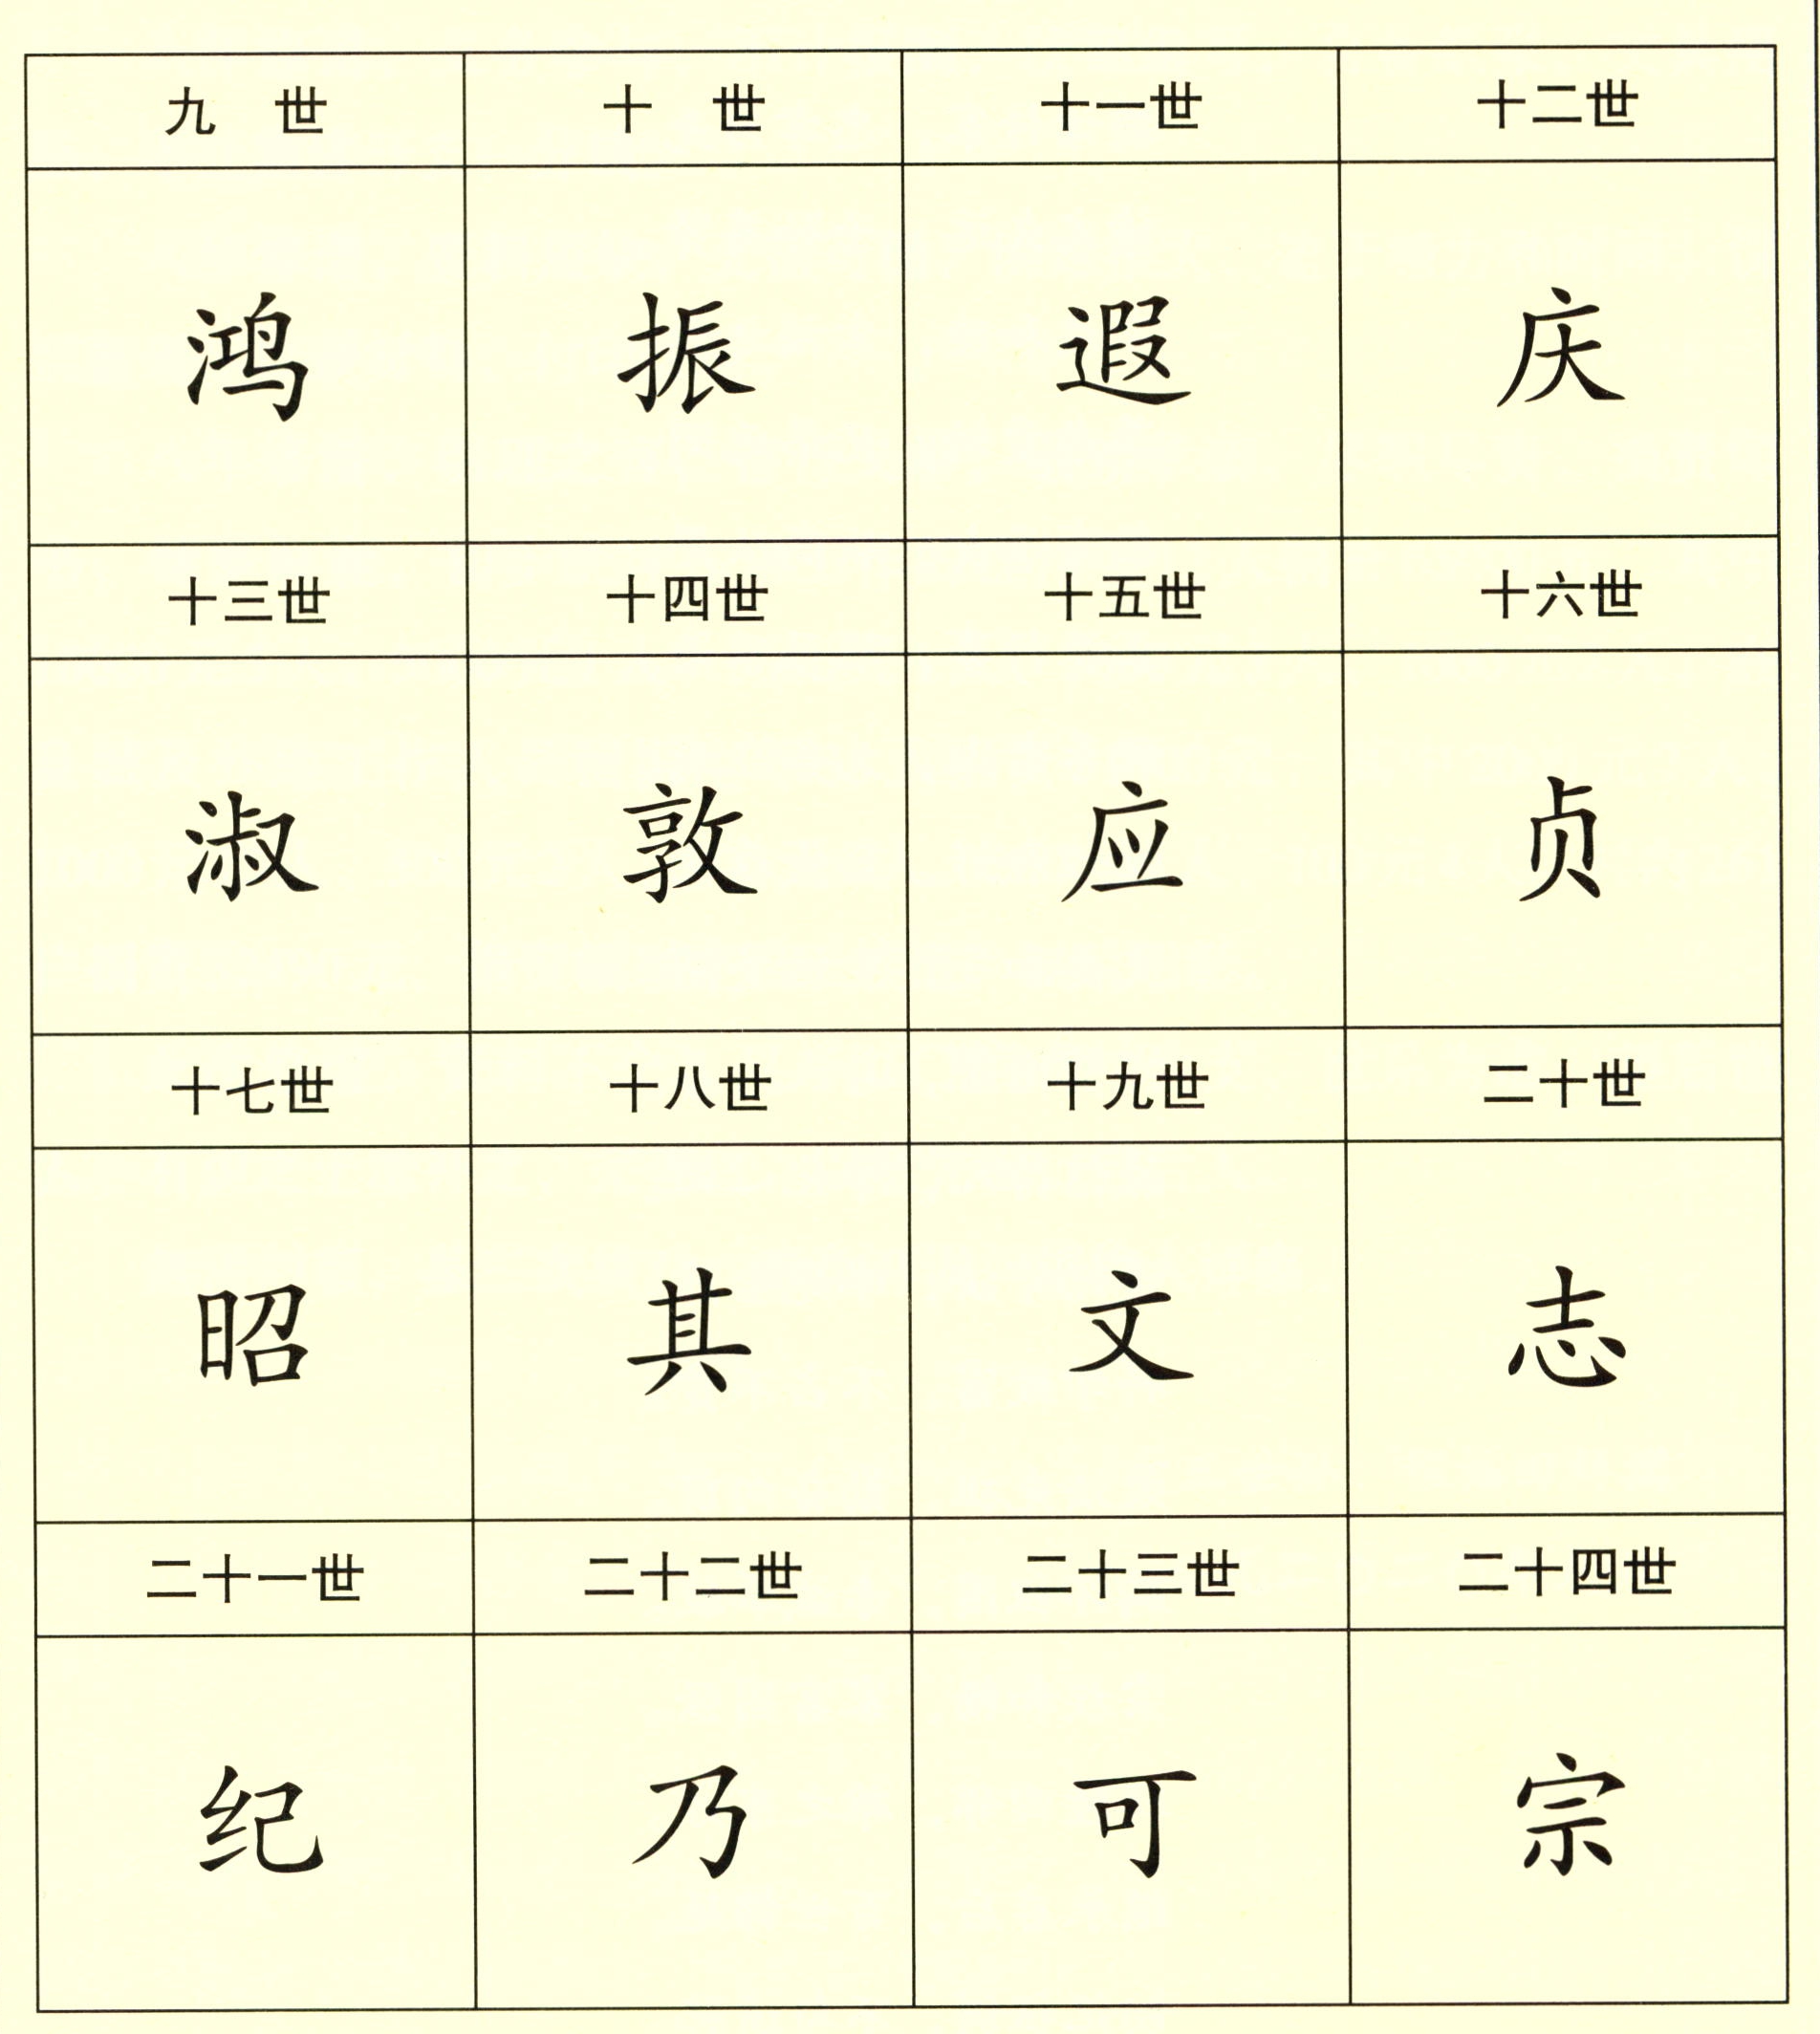 九 世 十 世 十一世 十二世
鸿 振 遐 庆
十三世 十四世 十五世 十六世
淑 敦 应 贞
十七世 十八世 十九世 二十世
昭 其 文 志
二十一世 二十二世 二十三世 二十四世
纪 乃 可 宗